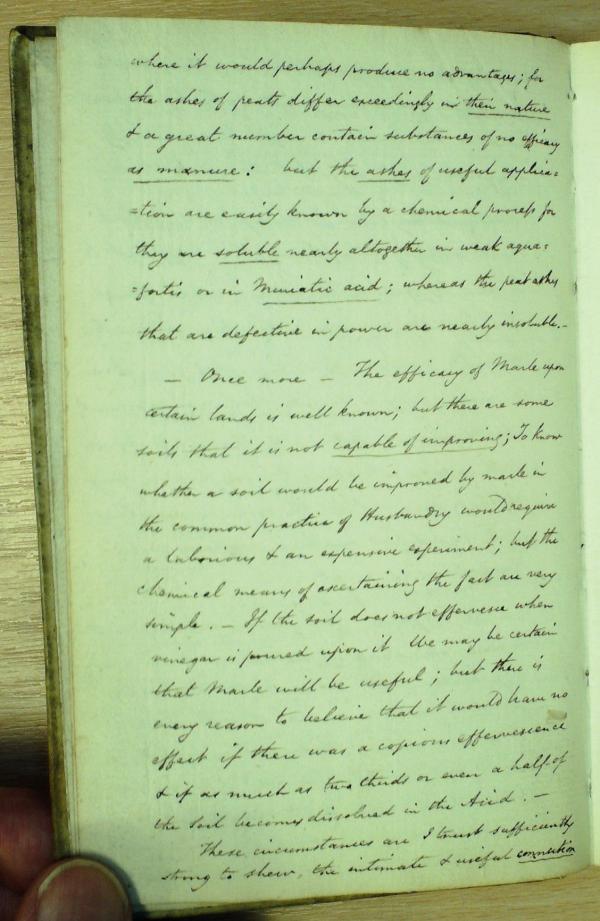 where it would perhaps produce no advantages; for
the ashes of peats differ exceedingly in their nature
& a great number contain substances of no efficacy
as manure: but the ashes of useful applica=
=tion are easily known by a chemical process for
they are soluble nearly altogether in weak aqua=
=fortis or in Muriatic acid; whereas the peat ashes
that are defective in power are nearly insoluble.—
— Once more — The efficacy of Marle upon
certain lands is well known; but there are some
soils that it is not capable of improving; To know
whether a soil would be improved by marle in
the common practice of Husbandry would require
a laborious & an expensive experiment; but the
chemical means of ascertaining the fact are very
simple. — If the soil does not effervesce when
vinegar is poured upon it We may be certain
that Marle will be useful; but there is
every reason to believe that it would have no
effect if there was a copious effervescence
& if as much as two thirds or even a half of
the soil becomes dissolved in the Acid. —
These circumstances are I trust sufficiently
strong to shew, the intimate & useful connection